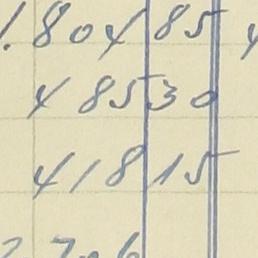 1.804 85
485 30
418 15